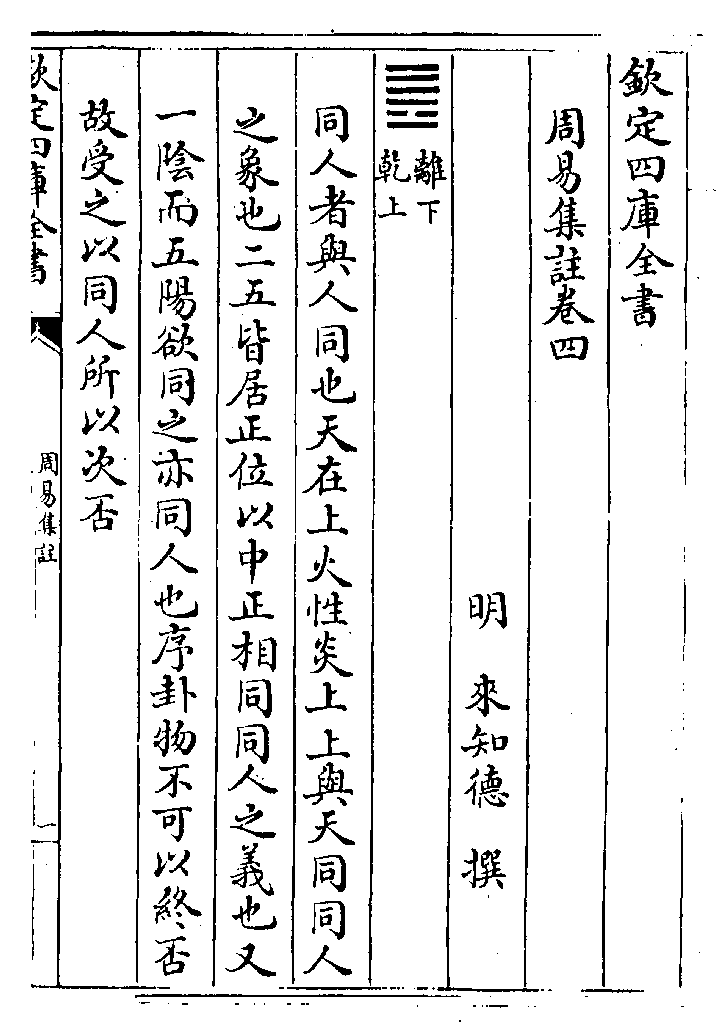 欽定四庫全書
周易集註卷四
明 來知德 撰
䷌ 離下
乾上
同人者與人同也天在上火性炎上上與天同同人
之象也二五皆居正位以中正相同同人之義也又
一陰而五陽欲同之亦同人也序卦物不可以終否
故受之以同人所以次否
欽定四庫全書
周易集註